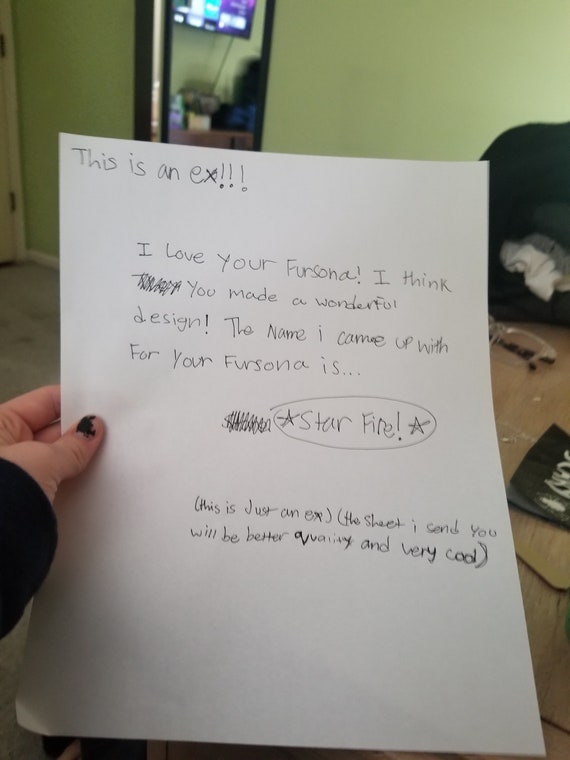 This is an ex!!!
I Love your Fursona! I think
You made a wonderful
design! The Name i came up with
For your Fursona is...
☆Star Fire!☆
(this is Just an ex) (the sheet i send you
will be better quality and very cool)